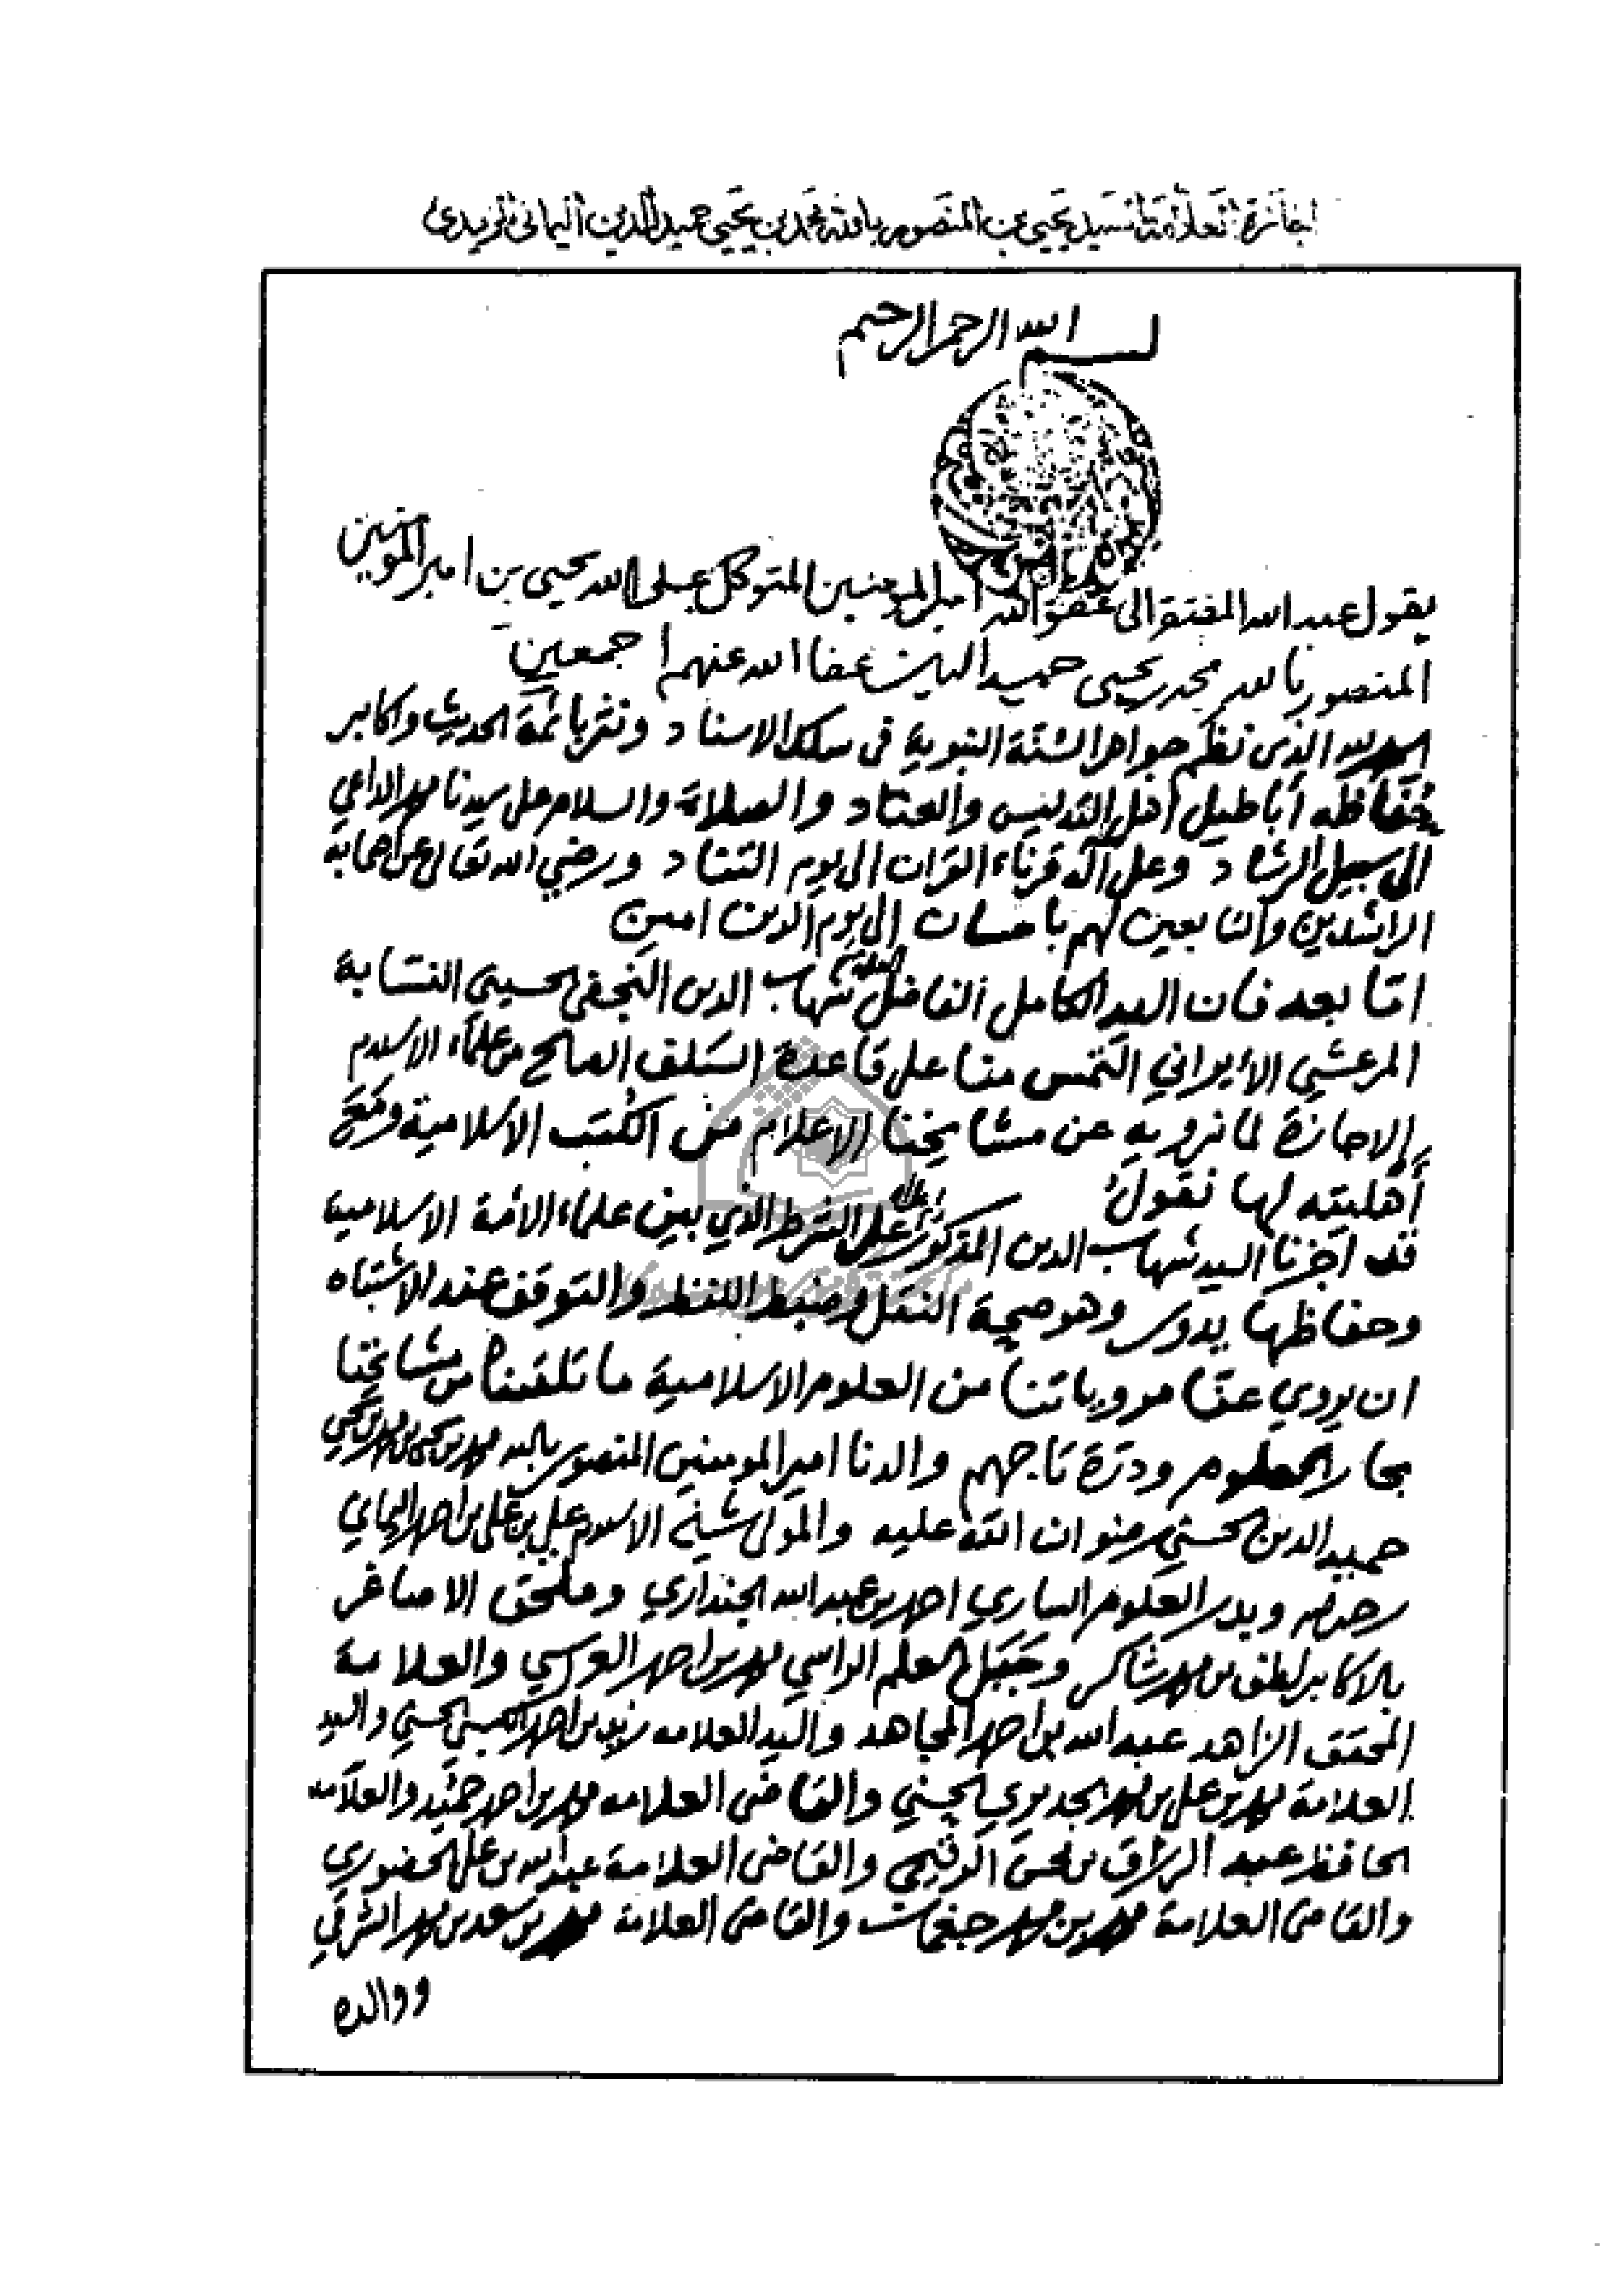 اجازة العلامة السيد يحيى بن المنصور بالله محمد بن يحيى حميد الدين اليماني الزيدي
بسم الله الرحمن الرحيم
يقول عبد الله المفتقر الى عفو الله امير المؤمنين المتوكل على الله يحيى بن امير المؤمنين
المنصور بالله محمد بن يحيى حميد الدين عفا الله عنهم اجمعين
الحمد لله الذي نظم جواهر السُّنّة النبوية في سلك الاسناد ونثر بائمّة الحديث واكابر
حُفّاظه أباطيل أهل التدليس والعناد والصلاة والسلام على سيدنا محمد الداعي
الى سبيل الرشاد وعلى آله قرناء القران الى يوم التناد ورضي الله تعالى عن اصحابه
الراشدين والتابعين لهم باحسان الى يوم الدين امين
امّا بعد فان السيد الكامل الفاضل العلامه شهاب الدين النجفي الحسيني النسّابة
المرعشي الأيراني التمس منا على قاعدة السَلَف الصالح من علماء الاسلام
الاجازة لما نرويه عن مشايخنا الاعلام من الكُتب الاسلامية ومَعَ
أَهليته لها نقولُ
قد اجزنا السيد شهاب الدين المذكور اعلاه على الشرط الذي بين علماء الامّة الاسلامية
وحفاظها يدور وهو صحة النقل وضبط اللفظ والتوقف عند الاشتباه
ان يروي عنّا مروياتنا من العلوم الاسلامية ما تلقيناه من مشايخنا
بحار العلوم ودرّة تاجهم والدنا امير المومنين المنصور بالله محمد بن يحيى بن محمد بن يحيى
حميد الدين الحسني رضوان الله عليه والمولى شيخ الاسلام علي بن علي بن احمد اليماني
رحمه وبدر العلوم الساري احمد بن عبد الله الجنداري وملحق الاصاغر
بالاكابر لطف بن محمد شاكر وجَبَل العلم الراسي محمد بن احمد العراسي والعلامة
المحقق الزاهد عبد الله بن احمد المجاهد والسيد العلامه زيد بن احمد الكبسي الحسني والسيد
العلامة محمد بن علي بن محمد الجديري الحسني والقاضي العلامه محمد بن احمد حميد والعلامه
الحافظ عبد الرزاق بن محسن الرقيحي والقاضي العلامة عبد الله بن علي الحضوري
والقاضي العلامة محمد بن محمد جغمان والقاضي العلامة محمد بن سعد بن محمد الشرقي
ووالده